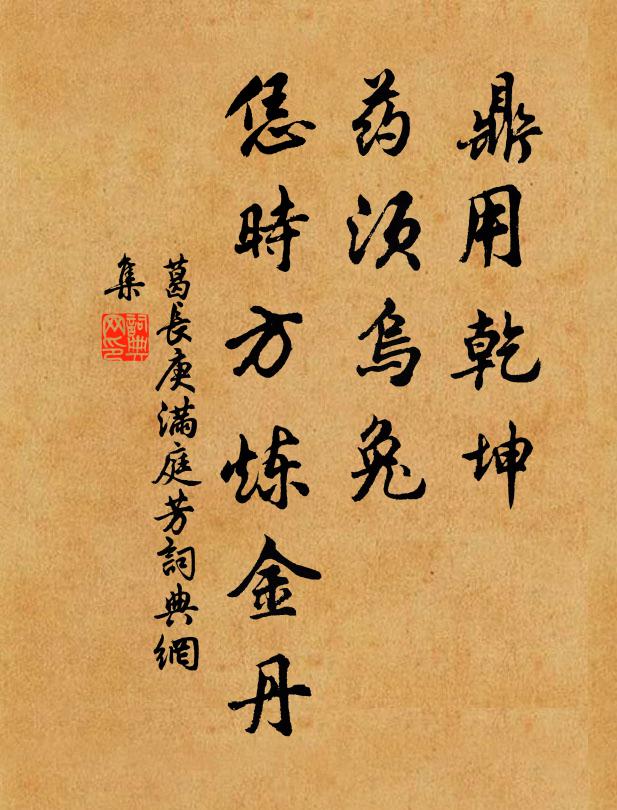 鼎用乾坤
药须乌兔
恁时方炼金丹
葛長庚满庭芳詞典網
集
詞典
网印